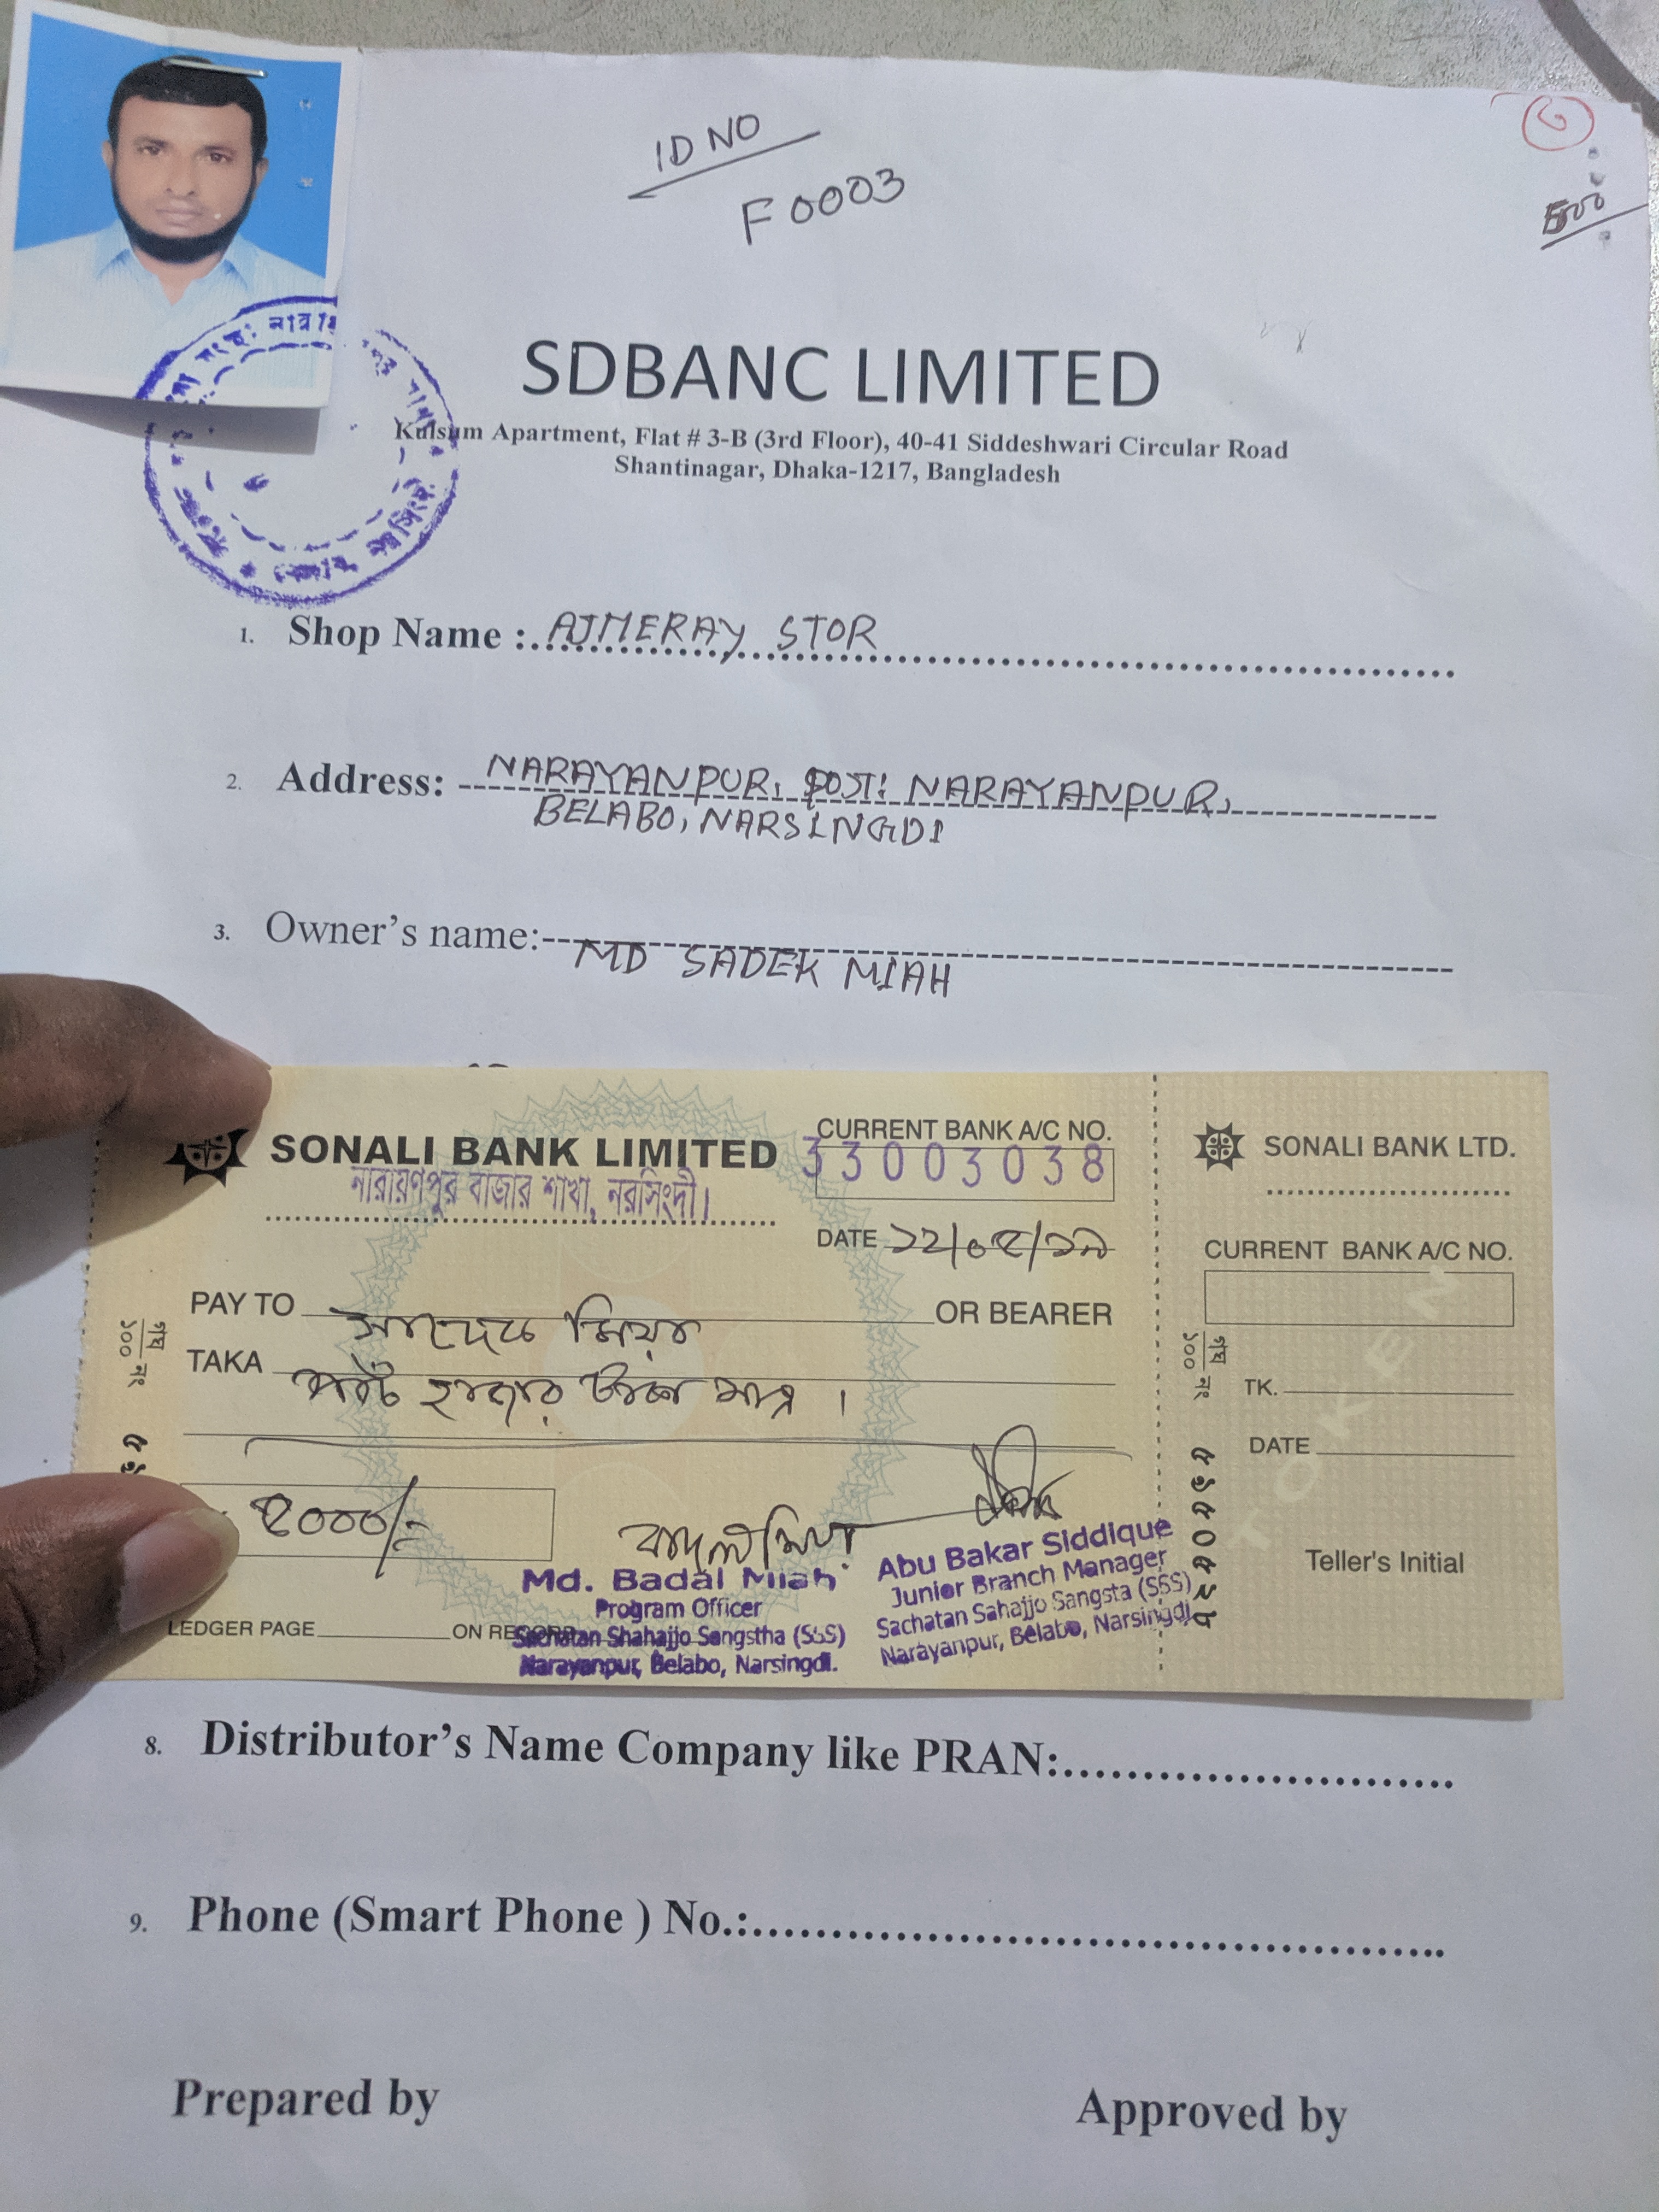 ID NO
F 0003
5000
SDBANC LIMITED
Kulsum Apartment, Flat # 3-B (3rd Floor), 40-41 Siddeshwari Circular Road
Shantinagar, Dhaka-1217, Bangladesh
1. Shop Name : AJMERAY STOR
2. Address: NARAYANPUR, POST: NARAYANPUR,
BELABO, NARSINGDI
3. Owner's name: MD SADEK MIAH
SONALI BANK LIMITED
নারায়ণপুর বাজার শাখা, নরসিংদী।
CURRENT BANK A/C NO.
33003038
DATE ১২/০৫/১৯
PAY TO সাদেক মিয়া OR BEARER
TAKA পাঁচ হাজার টাকা মাত্র ।
৫০০০/=
বাদল মিয়া
Md. Badal Miah
Program Officer
Sachatan Shahajjo Sangstha (SSS)
Narayanpur, Belabo, Narsingdi.
Abu Bakar Siddique
Junior Branch Manager
Sachatan Sahajjo Sangsta (SSS)
Narayanpur, Belabo, Narsingdi.
LEDGER PAGE ON RECORD
SONALI BANK LTD.
CURRENT BANK A/C NO.
TK.
DATE
TOKEN
Teller's Initial
8. Distributor's Name Company like PRAN:
9. Phone (Smart Phone ) No.:
Prepared by
Approved by